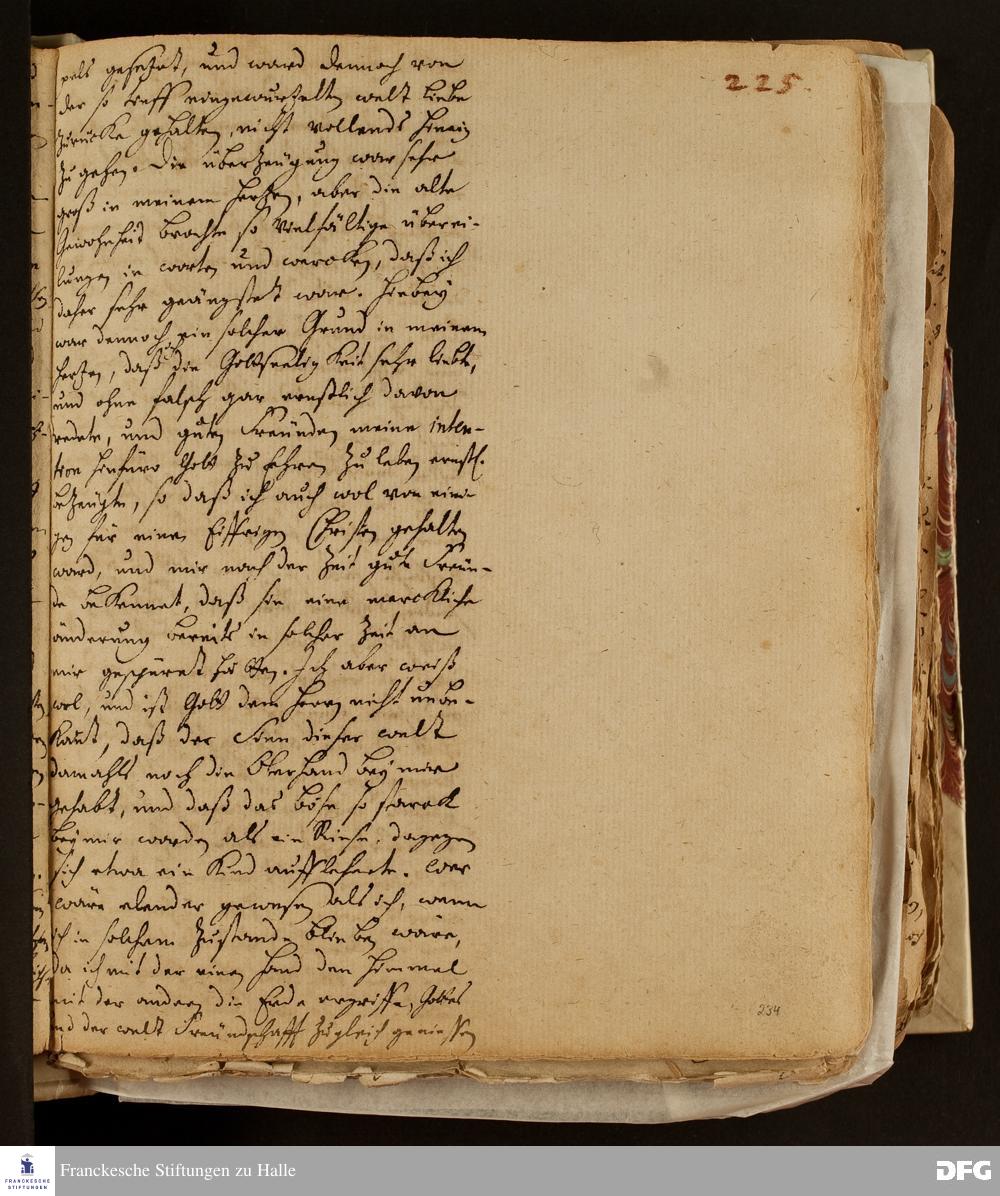 225.
pels gesetzet, und ward dennoch von
der so tieff eingewurtzelten welt liebe
zurücke gehalten, nicht vollends hinein
zu gehen. Die überzeugung war sehr
groß in meinem hertzen, aber die alte
Gewohnheit brachte so vielfältige überei-
lungen in worten und wercken, daß ich
daher sehr geängstet war. Hiebey
war dennoch ein solcher Grund in meinem
hertzen, daß ich die Gottseeligkeit sehr liebte,
und ohne falsch gar ernstlich davon
redete, und guten Freunden meine inten-
tion hinfüro Gott zu Ehren zu leben ernstl.
bezeugte, so daß ich auch wol von eini-
gen für einen Eiffrigen Christen gehalten
ward, und mir nach der Zeit gute Freun-
de bekennet, daß sie eine merckliche
änderung bereits in solcher Zeit an
mir gespüret hätten. Ich aber weiß
wol, und ist Gott dem Herrn nicht unbe-
kant, daß der Sinn dieser welt
damahls noch die Oberhand bey mir
gehabt, und daß das böse so starck
bey mir worden als ein Riese, dagegen
sich etwa ein Kind aufflehnete. Wer
wäre elender gewesen als ich, wenn
ich in solchem Zustande blieben wäre,
da ich mit der einen Hand den Himmel
mit der andern die Erde ergriffe, Gottes
und der welt Freundschafft zugleich geniessen
234
FRANCKESCHE
STIFTUNGEN
Franckesche Stiftungen zu Halle
DFG